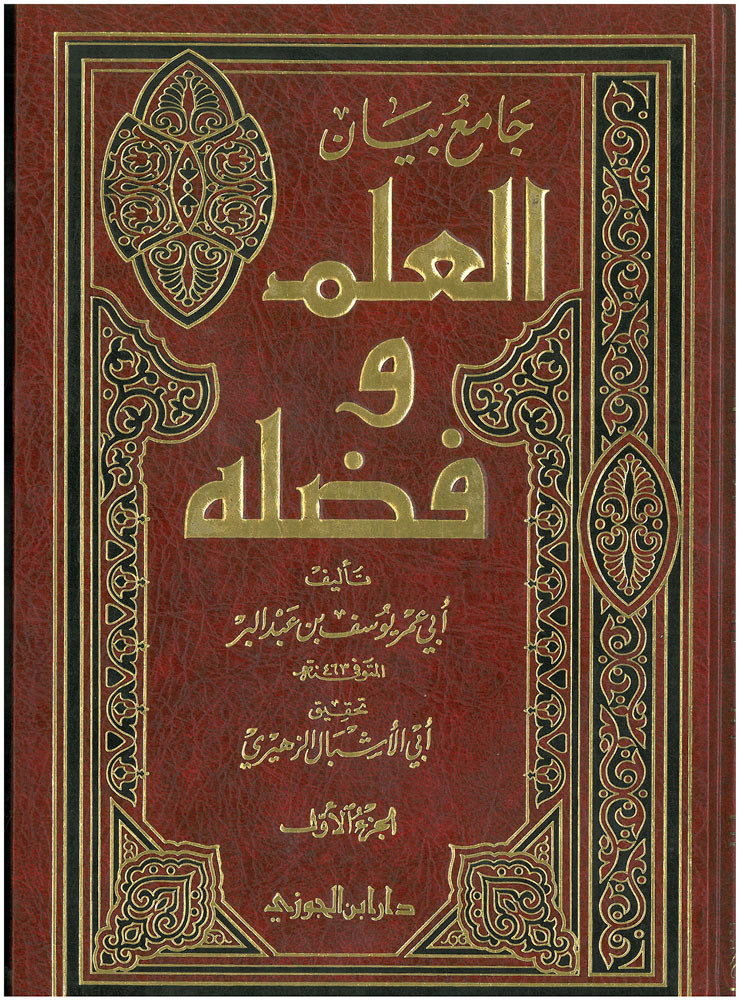 جَامِعُ بَيَان
العلم
و
فضله
تأليف
أبي عمر يوسف بن عبد البر
المتوفى سنة ٤٦٣هـ
تحقيق
أبي الأشبال الزهيري
الجزء الأول
دار ابن الجوزي